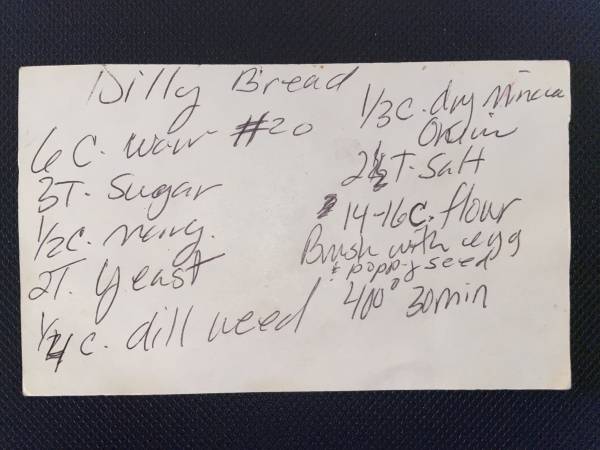 Dilly Bread
6 C. warr #20
3T. Sugar
1/2c. marg.
2T. yeast
1/4 c. dill weed
1/3 c. dry minced
Onion
2 1/2 T. Salt
14-16 c. flour
Brush with egg
& poppy seed
400° 30min